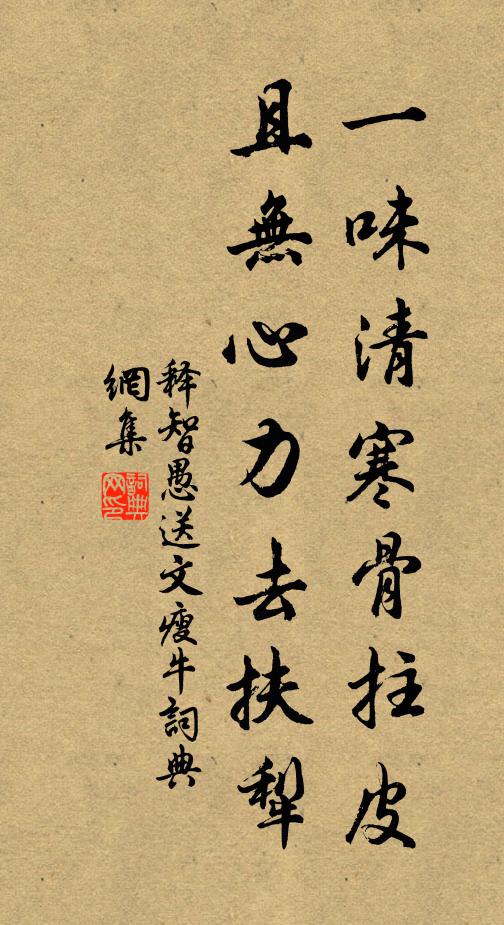 一味清寒骨拄皮
且無心力去扶犁
释智愚送文瘦牛詞典
網集
詞典
网印